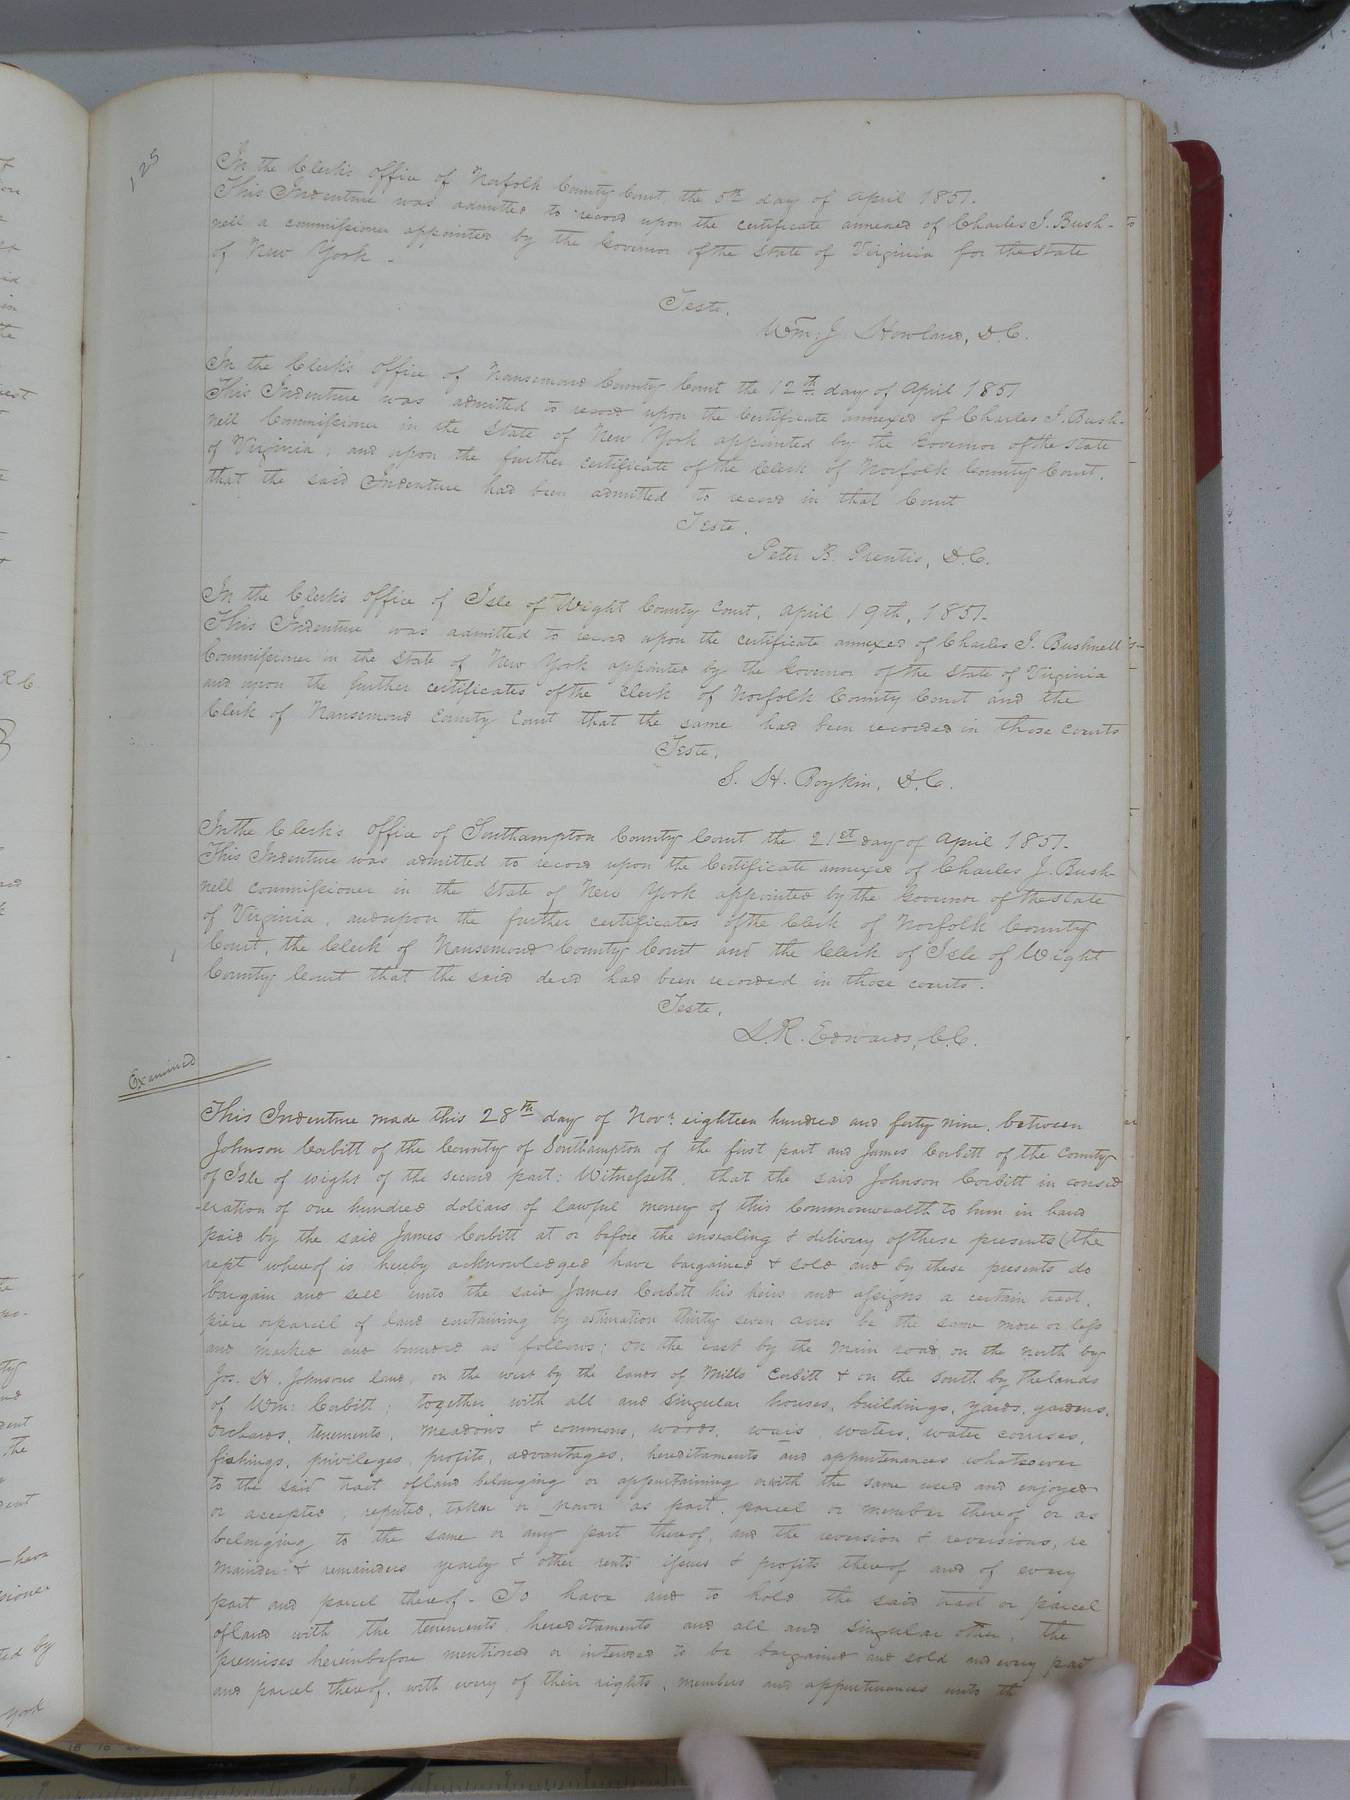 125
In the Clerk's Office of Norfolk County Court, the 5th day of April 1851.
This Indenture was admitted to record upon the certificate annexed of Charles J. Bush-
nell a commissioner appointed by the Governor of the State of Virginia for the State
of New York.
Teste.
Wm: J. Howland, D.C.
In the Clerk's Office of Nansemond County Court the 12th day of April 1851
This Indenture was admitted to record upon the Certificate annexed of Charles J. Bush-
nell Commissioner in the State of New York appointed by the Governor of the State
of Virginia, and upon the further certificate of the Clerk of Norfolk County Court,
that the said Indenture had been admitted to record in that Court
Teste.
Peter B. Prentis, D.C.
In the Clerk's Office of Isle of Wight County Court, April 19th, 1851.
This Indenture was admitted to record upon the certificate annexed of Charles J. Bushnell
Commissioner in the State of New York appointed by the Governor of the State of Virginia
and upon the further certificates of the Clerk of Norfolk County Court and the
Clerk of Nansemond County Court that the same had been recorded in those courts
Teste.
S. H. Boykin, D.C.
In the Clerk's Office of Southampton County Court the 21st day of April 1851.
This Indenture was admitted to record upon the Certificate annexed of Charles J. Bush
nell commissioner in the State of New York appointed by the Governor of the State
of Virginia, and upon the further certificates of the Clerk of Norfolk County
Court, the Clerk of Nansemond County Court and the Clerk of Isle of Wight
County Court that the said deed had been recorded in those courts.
Teste.
L.R. Edwards, C.C.
Examined
This Indenture made this 28th day of Novr. eighteen hundred and forty nine, between
Johnson Corbitt of the County of Southampton of the first part and James Corbitt of the County
of Isle of wight of the second part: Witnesseth, that the said Johnson Corbitt in consid
-eration of one hundred dollars of lawful money of this Commonwealth to him in hand
paid by the said James Corbitt at or before the ensealing & delivery of these presents (the
rept whereof is hereby acknowledged have bargained & sold and by these presents do
bargain and sell unto the said James Corbitt his heirs and assigns a certain tract,
piece or parcel of land containing by estimation thirty seven acres be the same more or less
and marked and bounded as follows: On the east by the Main road, on the north by
Jos. H. Johnsons land, on the west by the lands of Mills Corbitt & on the South by the lands
of Wm: Corbitt; together with all and singular houses, buildings, yards, gardens,
orchards, tenements, meadows & commons, woods, wais, waters, water courses,
fishings, privileges, profits, advantages, hereditaments and appurtenances whatsoever
to the said tract of land belonging or appurtaining or with the same used and enjoyed
or accepted, reputed, taken or nown as part, parcel or member thereof or as
belonging to the same or any part thereof, and the reversion & reversions, re
mainder & remainders yearly & other rents issues & profits thereof and of every
part and parcel thereof. To have and to hold the said tract or parcel
of land with the tenements hereditaments and all and singular other, the
premises hereinbefore mentioned or intended to be bargained and sold and every part
and parcel thereof, with every of their rights, members and appurtenances unto th